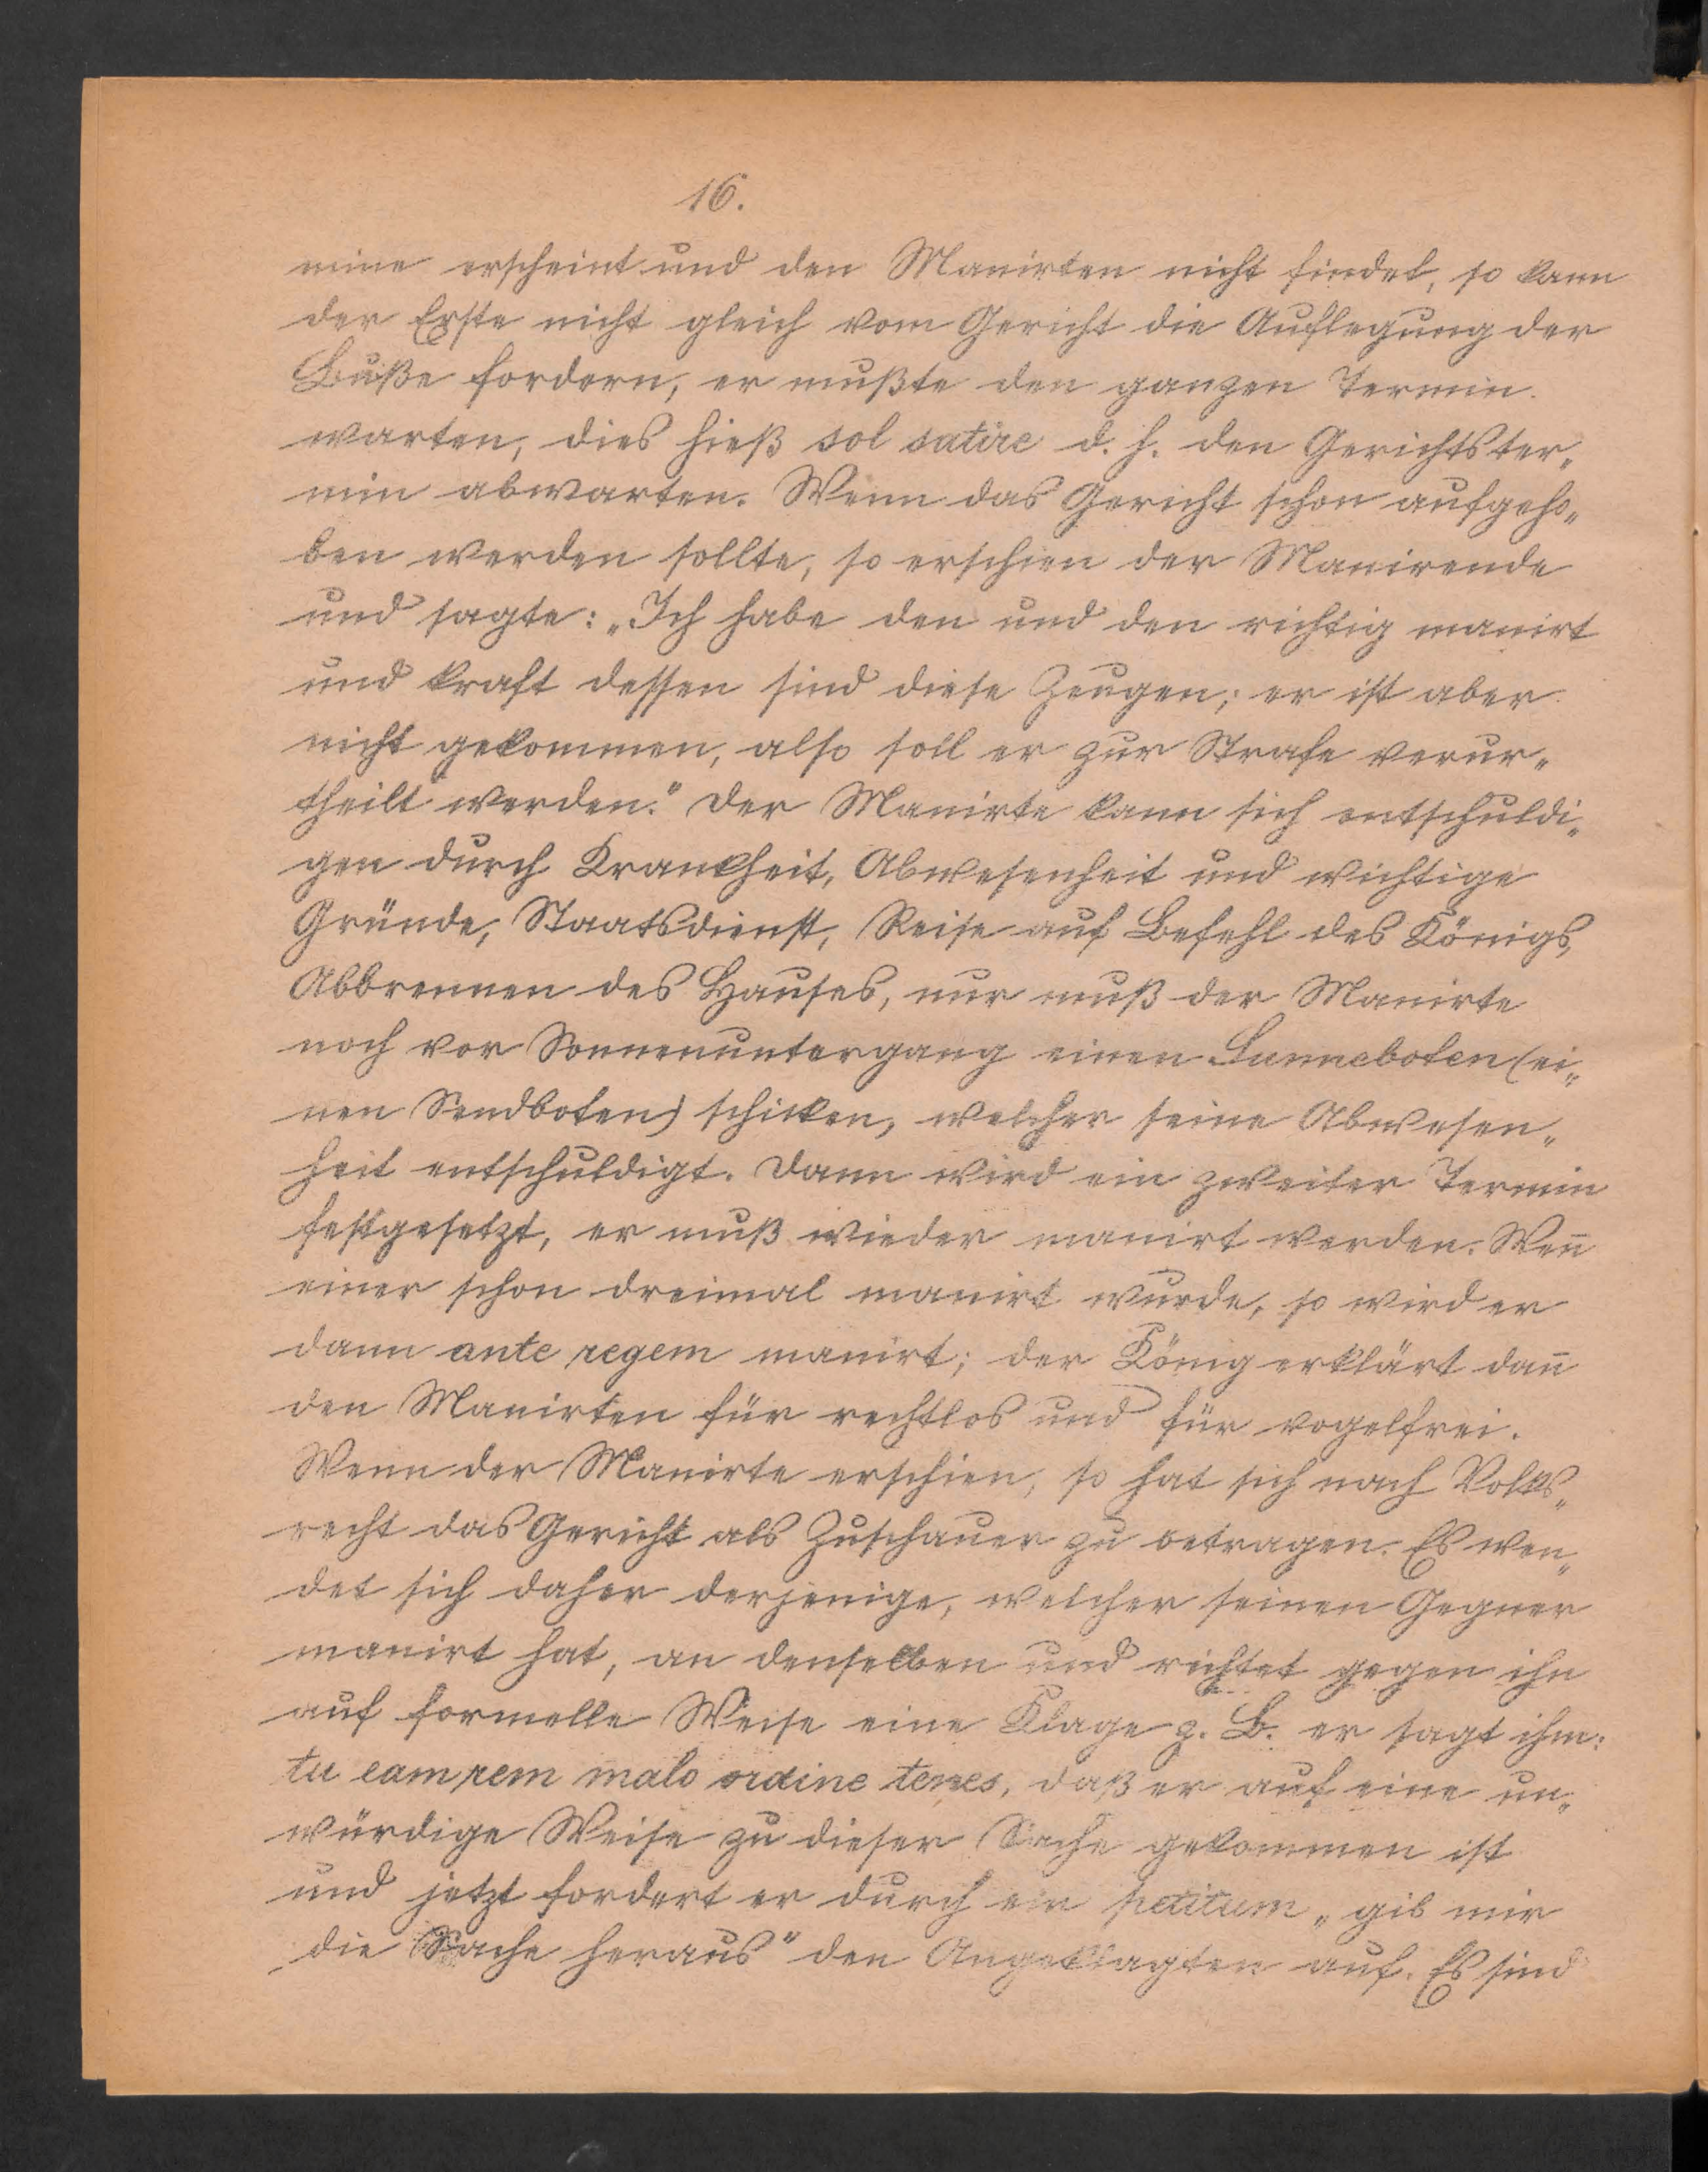 16.
mine erscheint und den Manirten nicht findet, so kann
der Erste nicht gleich vom Gericht die Auflegung der
Buße fordern, er mußte den ganzen Termin
warten, dies hieß sol satire d. h. den Gerichtster„
min abwarten. Wenn das Gericht schon aufgeho„
ben werden sollte, so erschien der Manirende
und sagte: „Ich habe den und den richtig manirt
und kraft dessen sind diese Zeugen; er ist aber
nicht gekommen, also soll er zur Strafe verur„
theilt werden." Der Manirte kann sich entschuldi„
gen durch Krankheit, Abwesenheit und wichtige
Gründe, Staatsdienst, Reise auf Befehl des Königs,
Abbrennen des Hauses, nur muß der Manirte
noch vor Sonnenuntergang einen Sunneboten (ei„
nen Sendboten) schicken, welcher seine Abwesen„
heit entschuldigt. Dann wird ein zweiter Termin
festgesetzt, er muß wieder manirt werden. Wen̄
einer schon dreimal manirt wurde, so wird er
dann ante regem manirt; der König erklärt dan̄
den Manirten für rechtlos und für vogelfrei.
Wenn der Manirte erschien, so hat sich nach Volks„
recht das Gericht als Zuschauer zu betragen. Es wen„
det sich daher derjenige, welcher seinen Gegner
manirt hat, an denselben und richtet gegen ihn
auf formelle Weise eine Klage z. B. er sagt ihm:
tu eam rem malo ordine tenes, daß er auf eine un„
würdige Weise zu dieser Sache gekommen ist
und jetzt fordert er durch ein petitum „gib mir
die Sache heraus" den Angeklagten auf. Es sind